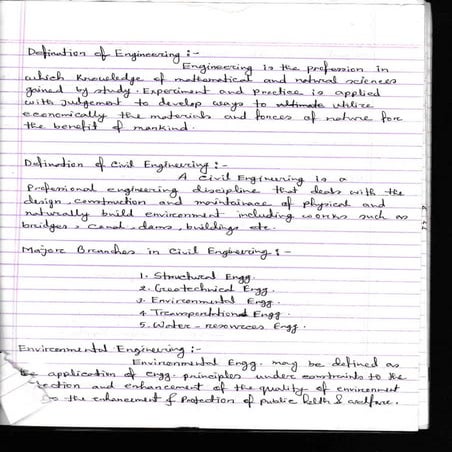 Defination of Engineering :-
Engineering is the profession in
which knowledge of mathematical and natural sciences
gained by study. Experiment and practice is applied
with Judgement to develop ways to ultimate utilize
economically the materials and forces of nature for
the benefit of mankind.
Defination of Civil Engineering :-
A Civil Engineering is a
Professional engineering discipline that deals with the
design, construction and maintainace of physical and
naturally build environment including works such as
bridges, canal, dams, buildings etc.
Major Branches in Civil Engineering :-
1. Structural Engg.
2. Geotechnical Engg.
3. Environmental Engg.
4. Transportational Engg.
5. Water-resources Engg.
Environmental Engineering :-
Environmental Engg. may be defined as
application of engg. principles under constraints to the
and enhancement of the quality of environment
the enhancement & Protection of public helth & welfare.